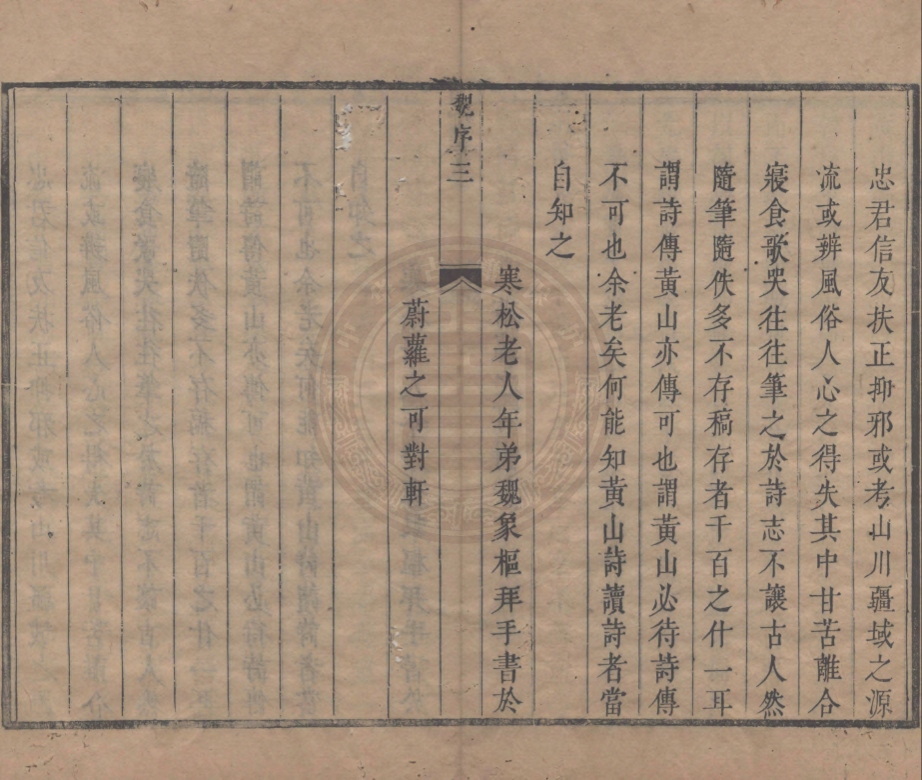 忠君信友扶正抑邪或考山川疆域之源
流或辨風俗人心之得失其中甘苦離合
寢食歌哭往往筆之於詩志不讓古人然
隨筆隨佚多不存稿存者千百之什一耳
謂詩傳黃山亦傳可也謂黃山必待詩傳
不可也余老矣何能知黃山詩讀詩者當
自知之
寒松老人年弟魏象樞拜手書於
魏序 三
蔚蘿之可對軒